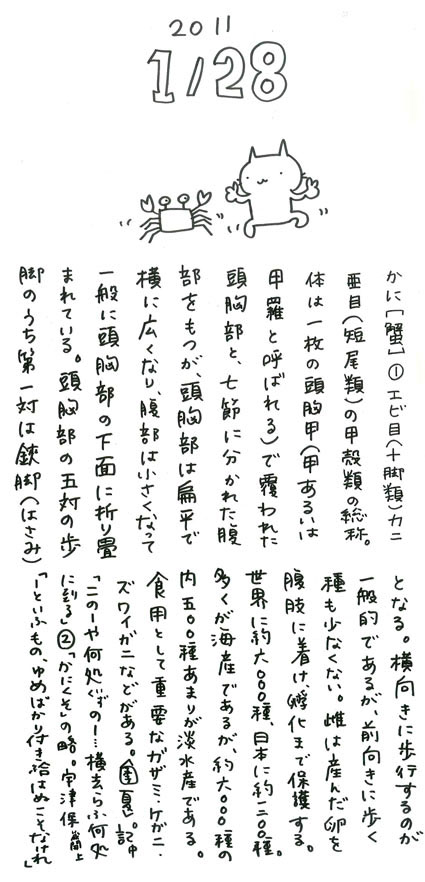 2011
1/28
かに［蟹］①エビ目（十脚類）カニ
亜目（短尾類）の甲殻類の総称。
体は一枚の頭胸甲（甲あるいは
甲羅と呼ばれる）で覆われた
頭胸部と、七節に分かれた腹
部をもつが、頭胸部は扁平で
横に広くなり、腹部は小さくなって
一般に頭胸部の下面に折り畳
まれている。頭胸部の五対の歩
脚のうち第一対は鋏脚（はさみ）
となる。横向きに歩行するのが
一般的であるが、前向きに歩く
種も少なくない。雌は産んだ卵を
腹肢に着け、孵化まで保護する。
世界に約六〇〇〇種、日本に約一二〇〇種。
多くが海産であるが、約六〇〇〇種の
内五〇〇種あまりが淡水産である。
食用として重要なガザミ・ケガニ・
ズワイガニなどがある。㊎夏。記中
「この―や何処の―…横去らふ何処
に到る」②「かにくそ」の略。宇津保蔵開上
「―といふもの、ゆめばかり付き給はぬこそなけれ」